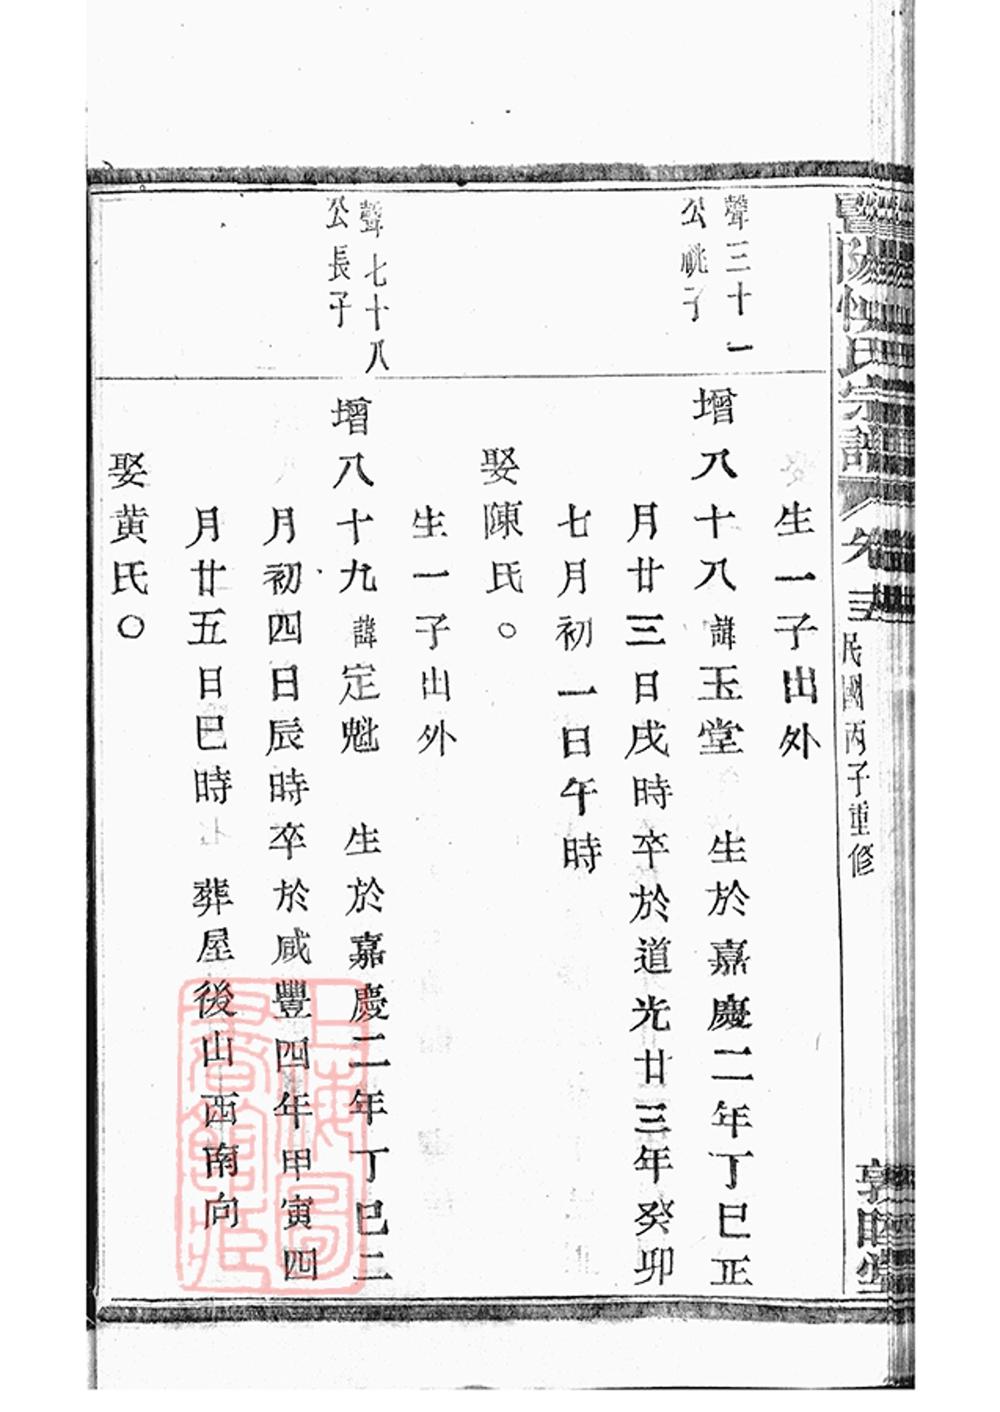 暨陽忻氏宗譜
民國丙子重修
生一子出外
聲三十一
公祧子
增八十八諱玉堂 生於嘉慶二年丁巳正
月廿三日戌時卒於道光廿三年癸卯
七月初一日午時
娶陳氏○
生一子出外
聲七十八
公長子
增八十九諱定魁 生於嘉慶二年丁巳二
月初四日辰時卒於咸豐四年甲寅四
月廿五日巳時 葬屋後山西南向
娶黄氏○
上海圖
書館藏